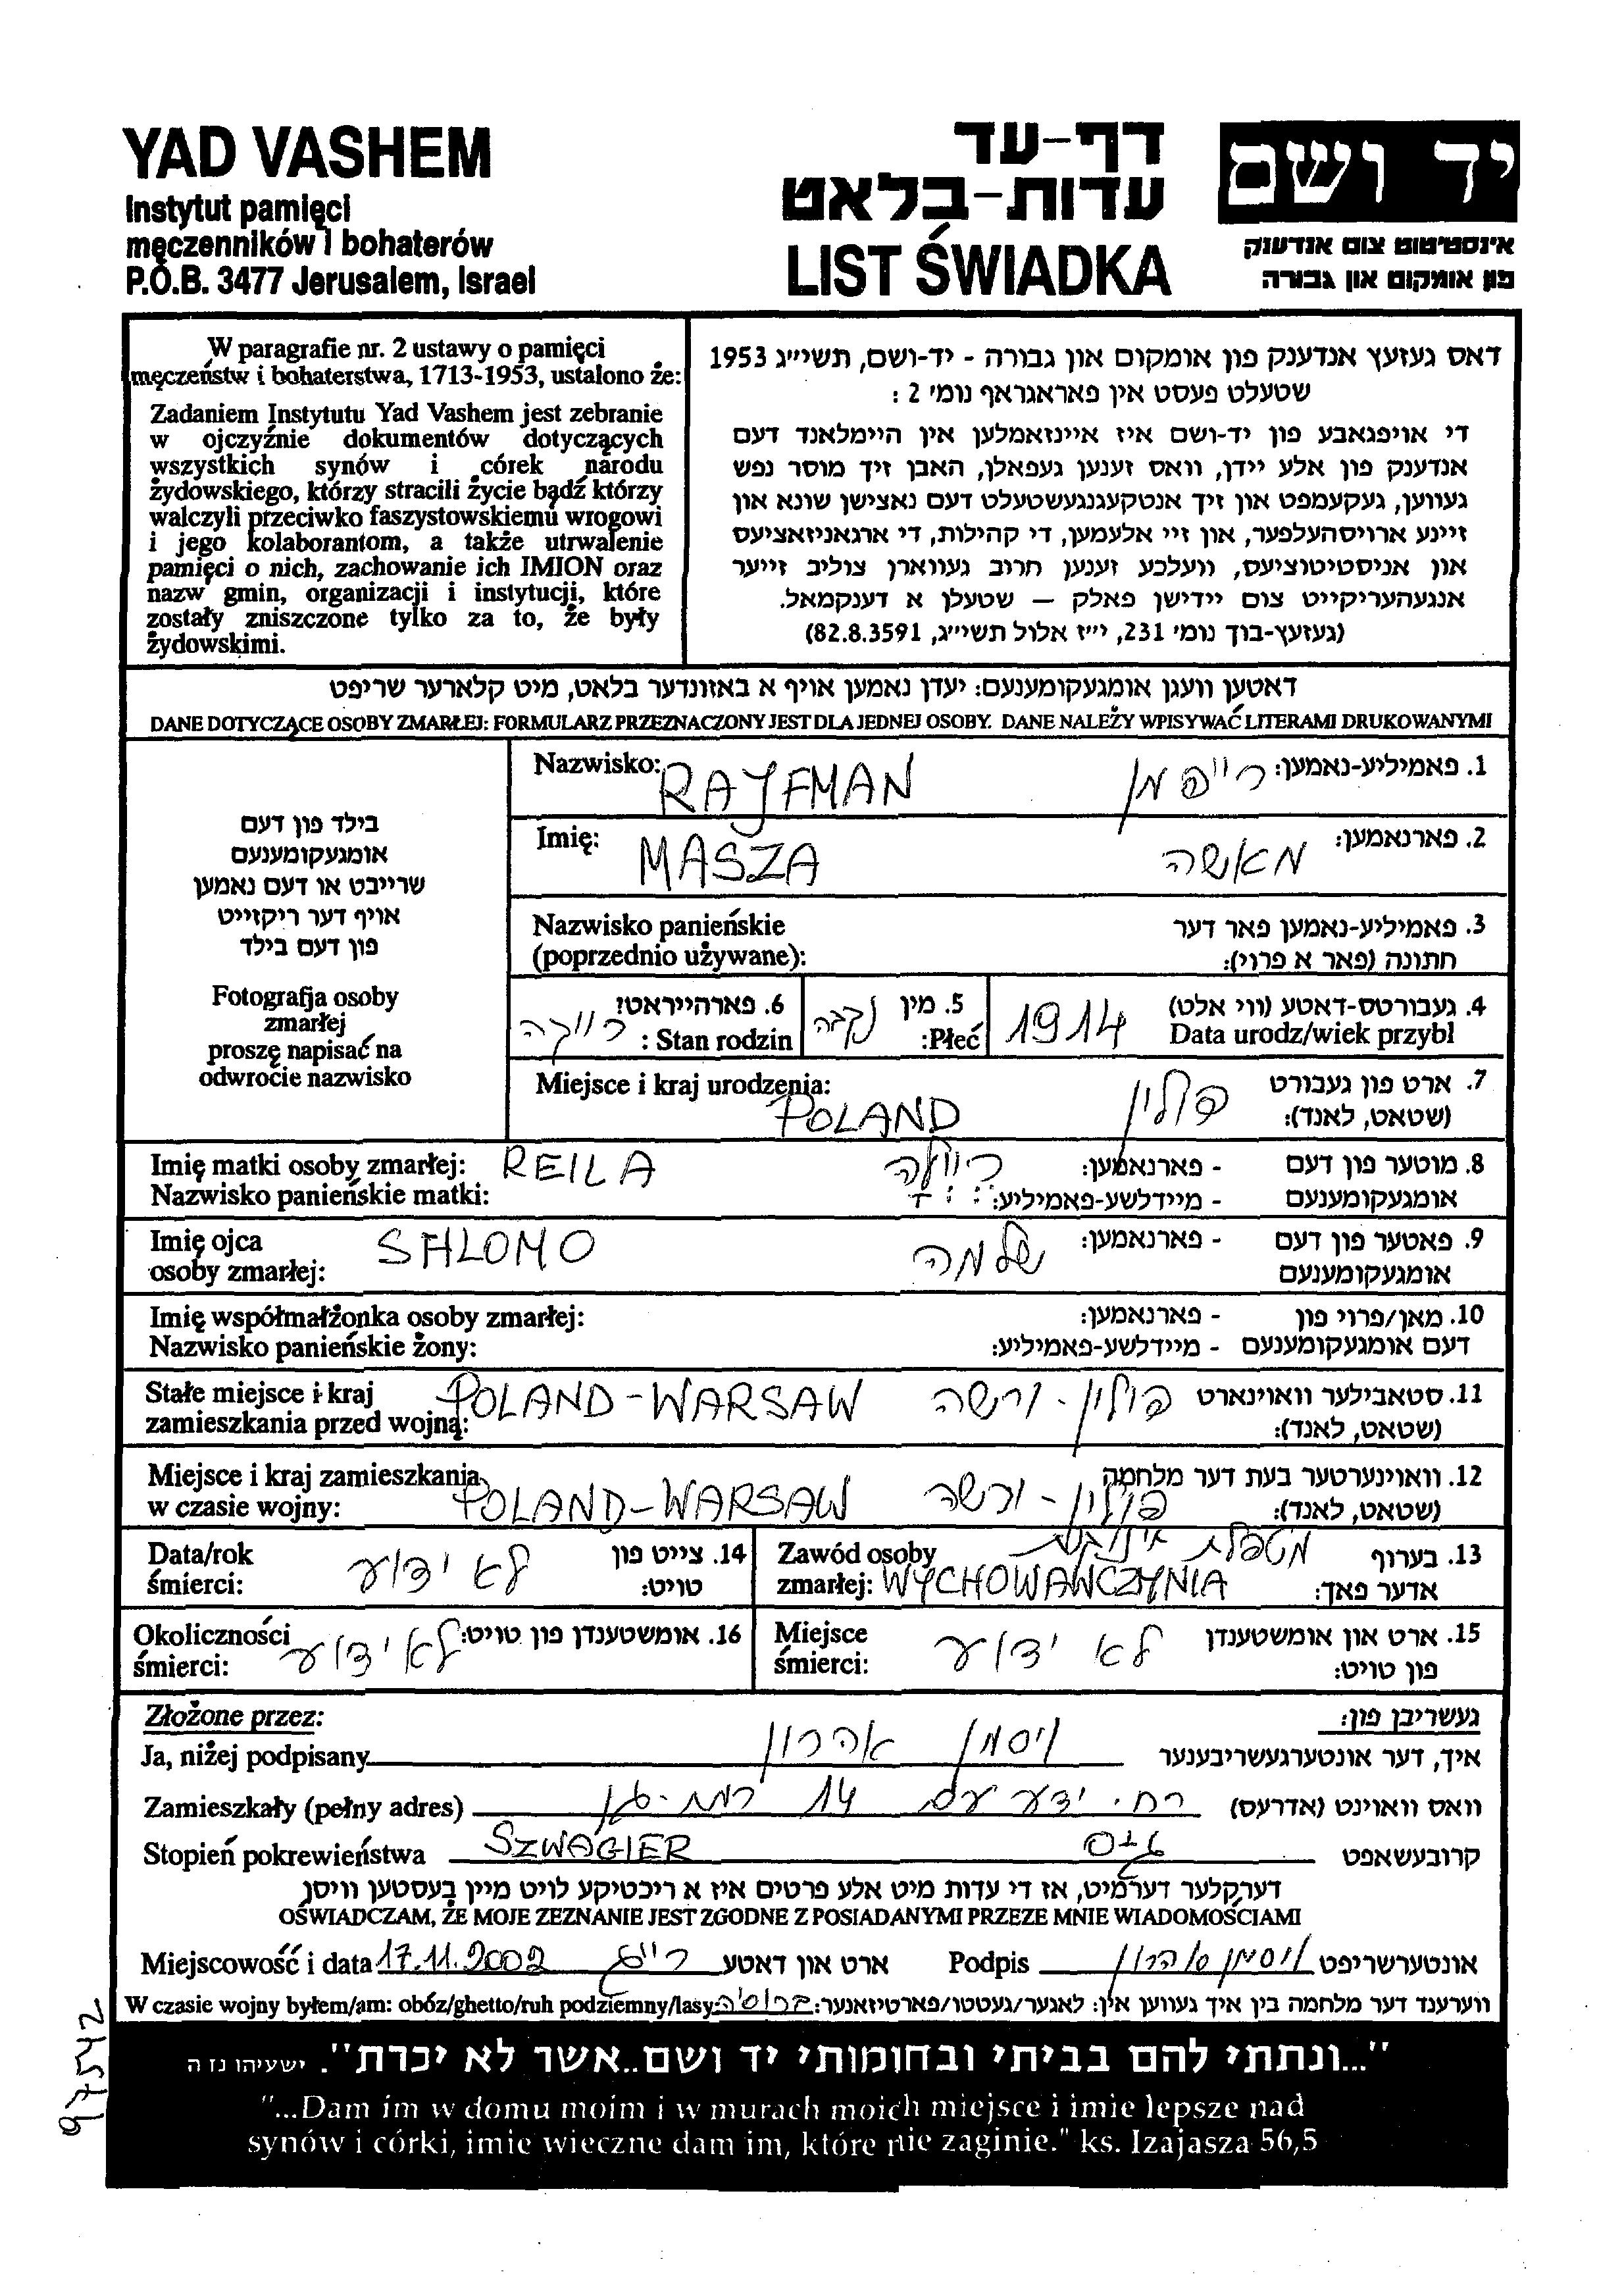 YAD VASHEM
Instytut pamięci
męczenników i bohaterów
P.O.B. 3477 Jerusalem, Israel
דף-עד
עדות-בלאט
LIST ŚWIADKA
יד ושם
אינסטיטוט צום אנדענק
פון אומקום און גבורה
W paragrafie nr. 2 ustawy o pamięci
męczeństw i bohaterstwa, 1713-1953, ustalono że:
Zadaniem Instytutu Yad Vashem jest zebranie
w ojczyźnie dokumentów dotyczących
wszystkich synów i córek narodu
żydowskiego, którzy stracili życie bądź którzy
walczyli przeciwko faszystowskiemu wrogowi
i jego kolaborantom, a także utrwalenie
pamięci o nich, zachowanie ich IMION oraz
nazw gmin, organizacji i instytucji, które
zostały zniszczone tylko za to, że były
żydowskimi.
דאס געזעץ אנדענק פון אומקום און גבורה - יד-ושם, תשי״ג 1953
שטעלט פעסט אין פאראגראף נומ׳ 2 :
די אויפגאבע פון יד-ושם איז איינזאמלען אין היימלאנד דעם
אנדענק פון אלע יידן, וואס זענען געפאלן, האבן זיך מוסר נפש
געווען, געקעמפט און זיך אנטקעגנגעשטעלט דעם נאצישן שונא און
זיינע ארויסהעלפער, און זיי אלעמען, די קהילות, די ארגאניזאציעס
און אניסטיטוציעס, וועלכע זענען חרוב געווארן צוליב זייער
אנגעהעריקייט צום יידישן פאלק – שטעלן א דענקמאל.
(געזעץ-בוך נומ׳ 231, י״ז אלול תשי״ג, 82.8.3591)
דאטען וועגן אומגעקומענעם: יעדן נאמען אויף א באזונדער בלאט, מיט קלארער שריפט
DANE DOTYCZĄCE OSOBY ZMARŁEJ: FORMULARZ PRZEZNACZONY JEST DLA JEDNEJ OSOBY. DANE NALEŻY WPISYWAĆ LITERAMI DRUKOWANYMI
בילד פון דעם
אומגעקומענעם
שרייבט או דעם נאמען
אויף דער ריקזייט
פון דעם בילד
Fotografja osoby
zmarłej
proszę napisać na
odwrocie nazwisko
Nazwisko: RAJFMAN רייפמן 1. פאמיליע-נאמען:
Imię: MASZA מאשה 2. פארנאמען:
Nazwisko panieńskie 3. פאמיליע-נאמען פאר דער
(poprzednio używane): חתונה (פאר א פרוי):
4. געבורטס-דאטע (ווי אלט) 1914
Data urodz/wiek przybl
5. מין נקבה
Płeć:
6. פארהייראט? רווקה
Stan rodzin :
Miejsce i kraj urodzenia: POLAND פולין 7. ארט פון געבורט
(שטאט, לאנד):
Imię matki osoby zmarłej: REILA ריילה - פארנאמען: 8. מוטער פון דעם
Nazwisko panieńskie matki: - מיידלשע-פאמיליע: אומגעקומענעם
Imię ojca SHLOMO שלמה - פארנאמען: 9. פאטער פון דעם
osoby zmarłej: אומגעקומענעם
Imię współmałżonka osoby zmarłej: - פארנאמען: 10. מאן/פרוי פון
Nazwisko panieńskie żony: - מיידלשע-פאמיליע: דעם אומגעקומענעם
Stałe miejsce i kraj POLAND-WARSAW פולין - ורשה 11. סטאבילער וואוינארט
zamieszkania przed wojną: (שטאט, לאנד):
Miejsce i kraj zamieszkania POLAND-WARSAW פולין - ורשה 12. וואוינערטער בעת דער מלחמה
w czasie wojny: (שטאט, לאנד):
Data/rok לא ידוע 14. צייט פון
śmierci: טויט:
Zawód osoby מטפלת 13. בערוף
zmarłej: WYCHOWAWCZYNIA אדער פאך:
Okoliczności לא ידוע 16. אומשטענדן פון טויט:
śmierci:
Miejsce לא ידוע 15. ארט און אומשטענדן
śmierci: פון טויט:
Złożone przez: געשריבן פון:
Ja, niżej podpisany ויסמן אהרון איך, דער אונטערגעשריבענער
Zamieszkały (pełny adres) רח׳ ידע עם 14 רמת-גן וואס וואוינט (אדרעס)
Stopień pokrewieństwa SZWAGIER גיס קרובעשאפט
דערקלער דערמיט, אז די עדות מיט אלע פרטים איז א ריכטיקע לויט מיין בעסטען וויסן
OŚWIADCZAM, ŻE MOJE ZEZNANIE JEST ZGODNE Z POSIADANYMI PRZEZE MNIE WIADOMOŚCIAMI
Miejscowość i data 17.11.2002 ר״ג ארט און דאטע Podpis ויסמן אהרון אונטערשריפט
W czasie wojny byłem/am: obóz/ghetto/ruh podziemny/lasy: ברוסיה ווערענד דער מלחמה בין איך געווען אין: לאגער/געטטו/פארטיזאנער:
"...ונתתי להם בביתי ובחומותי יד ושם..אשר לא יכרת". ישעיהו נז ה
"...Dam im w domu moim i w murach moich miejsce i imie lepsze nad
synów i córki, imie wieczne dam im, które nie zaginie." ks. Izajasza 56,5
97542